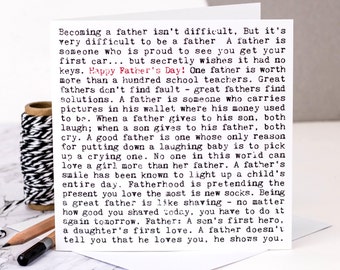 Becoming a father isn't difficult, But it's
very difficult to be a father  A father is
someone who is proud to see you get your
first car... but secretly wishes it had no
keys. Happy Father's Day! One father is worth
more than a hundred school teachers. Great
fathers don't find fault - great fathers find
solutions. A father is someone who carries
pictures in his wallet where his money used
to be. When a father gives to his son, both
laugh; when a son gives to his father, both
cry. A good father is one whose only reason
for putting down a laughing baby is to pick
up a crying one. No one in this world can
love a girl more than her father. A father's
smile has been known to light up a child's
entire day. Fatherhood is pretending the
present you love the most is new socks. Being
a great father is like shaving - no matter
how good you shaved today, you have to do it
again tomorrow. Father: A son's first hero,
a daughter's first love. A father doesn't
tell you that he loves you, he shows you.